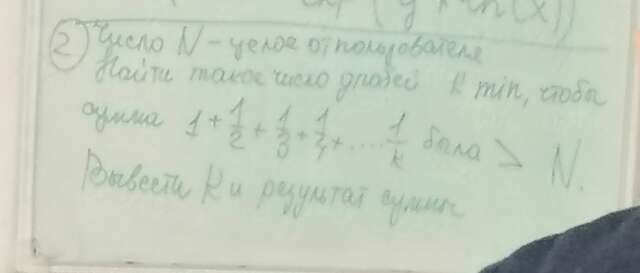 (y + sin(x))
② Число N – целое от пользователя
Найти такое число дробей k min, чтобы
сумма 1 + 1/2 + 1/3 + 1/4 + .... 1/k была > N.
Вывести k и результат суммы